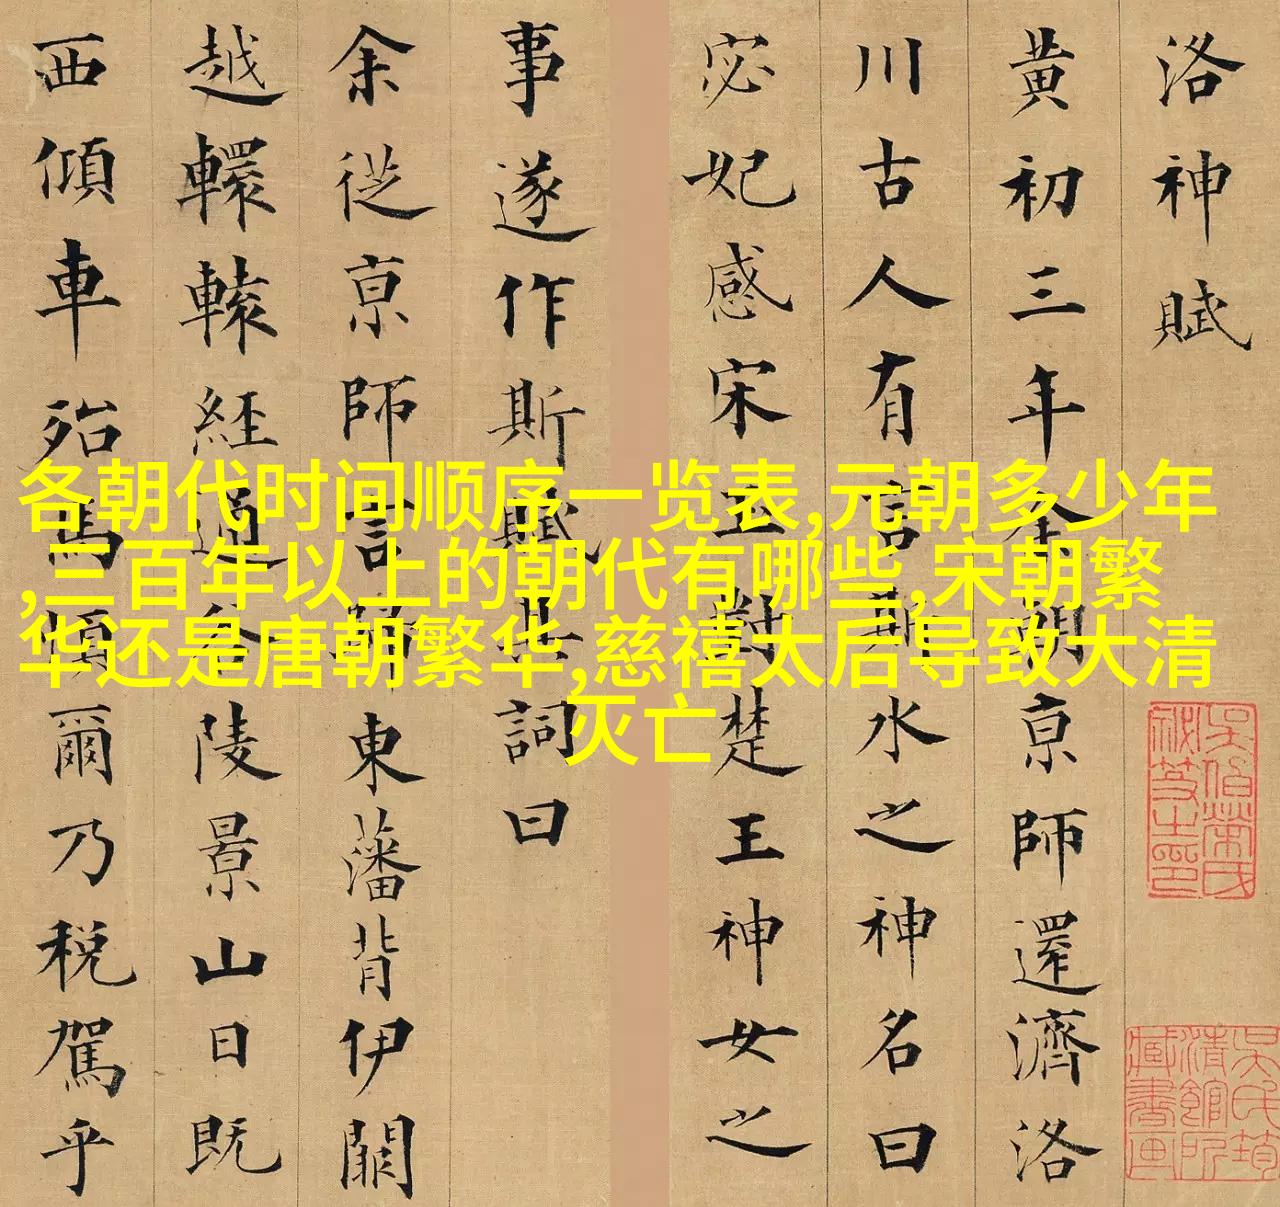 洛神賦
黄初三年余朝亰師還濟洛
川古人有言斯水之神名曰
宓妃感宋玉對楚王神女之
事遂作斯賦其詞曰
余從亰師言歸東藩背伊闕
越轘轅經通谷陵景山日既
西傾車殆馬煩爾乃稅駕乎
各朝代时间顺序一览表,元朝多少年
,三百年以上的朝代有哪些,宋朝繁
华还是唐朝繁华,慈禧太后导致大清
灭亡
吳氏筠
清館所
藏書画